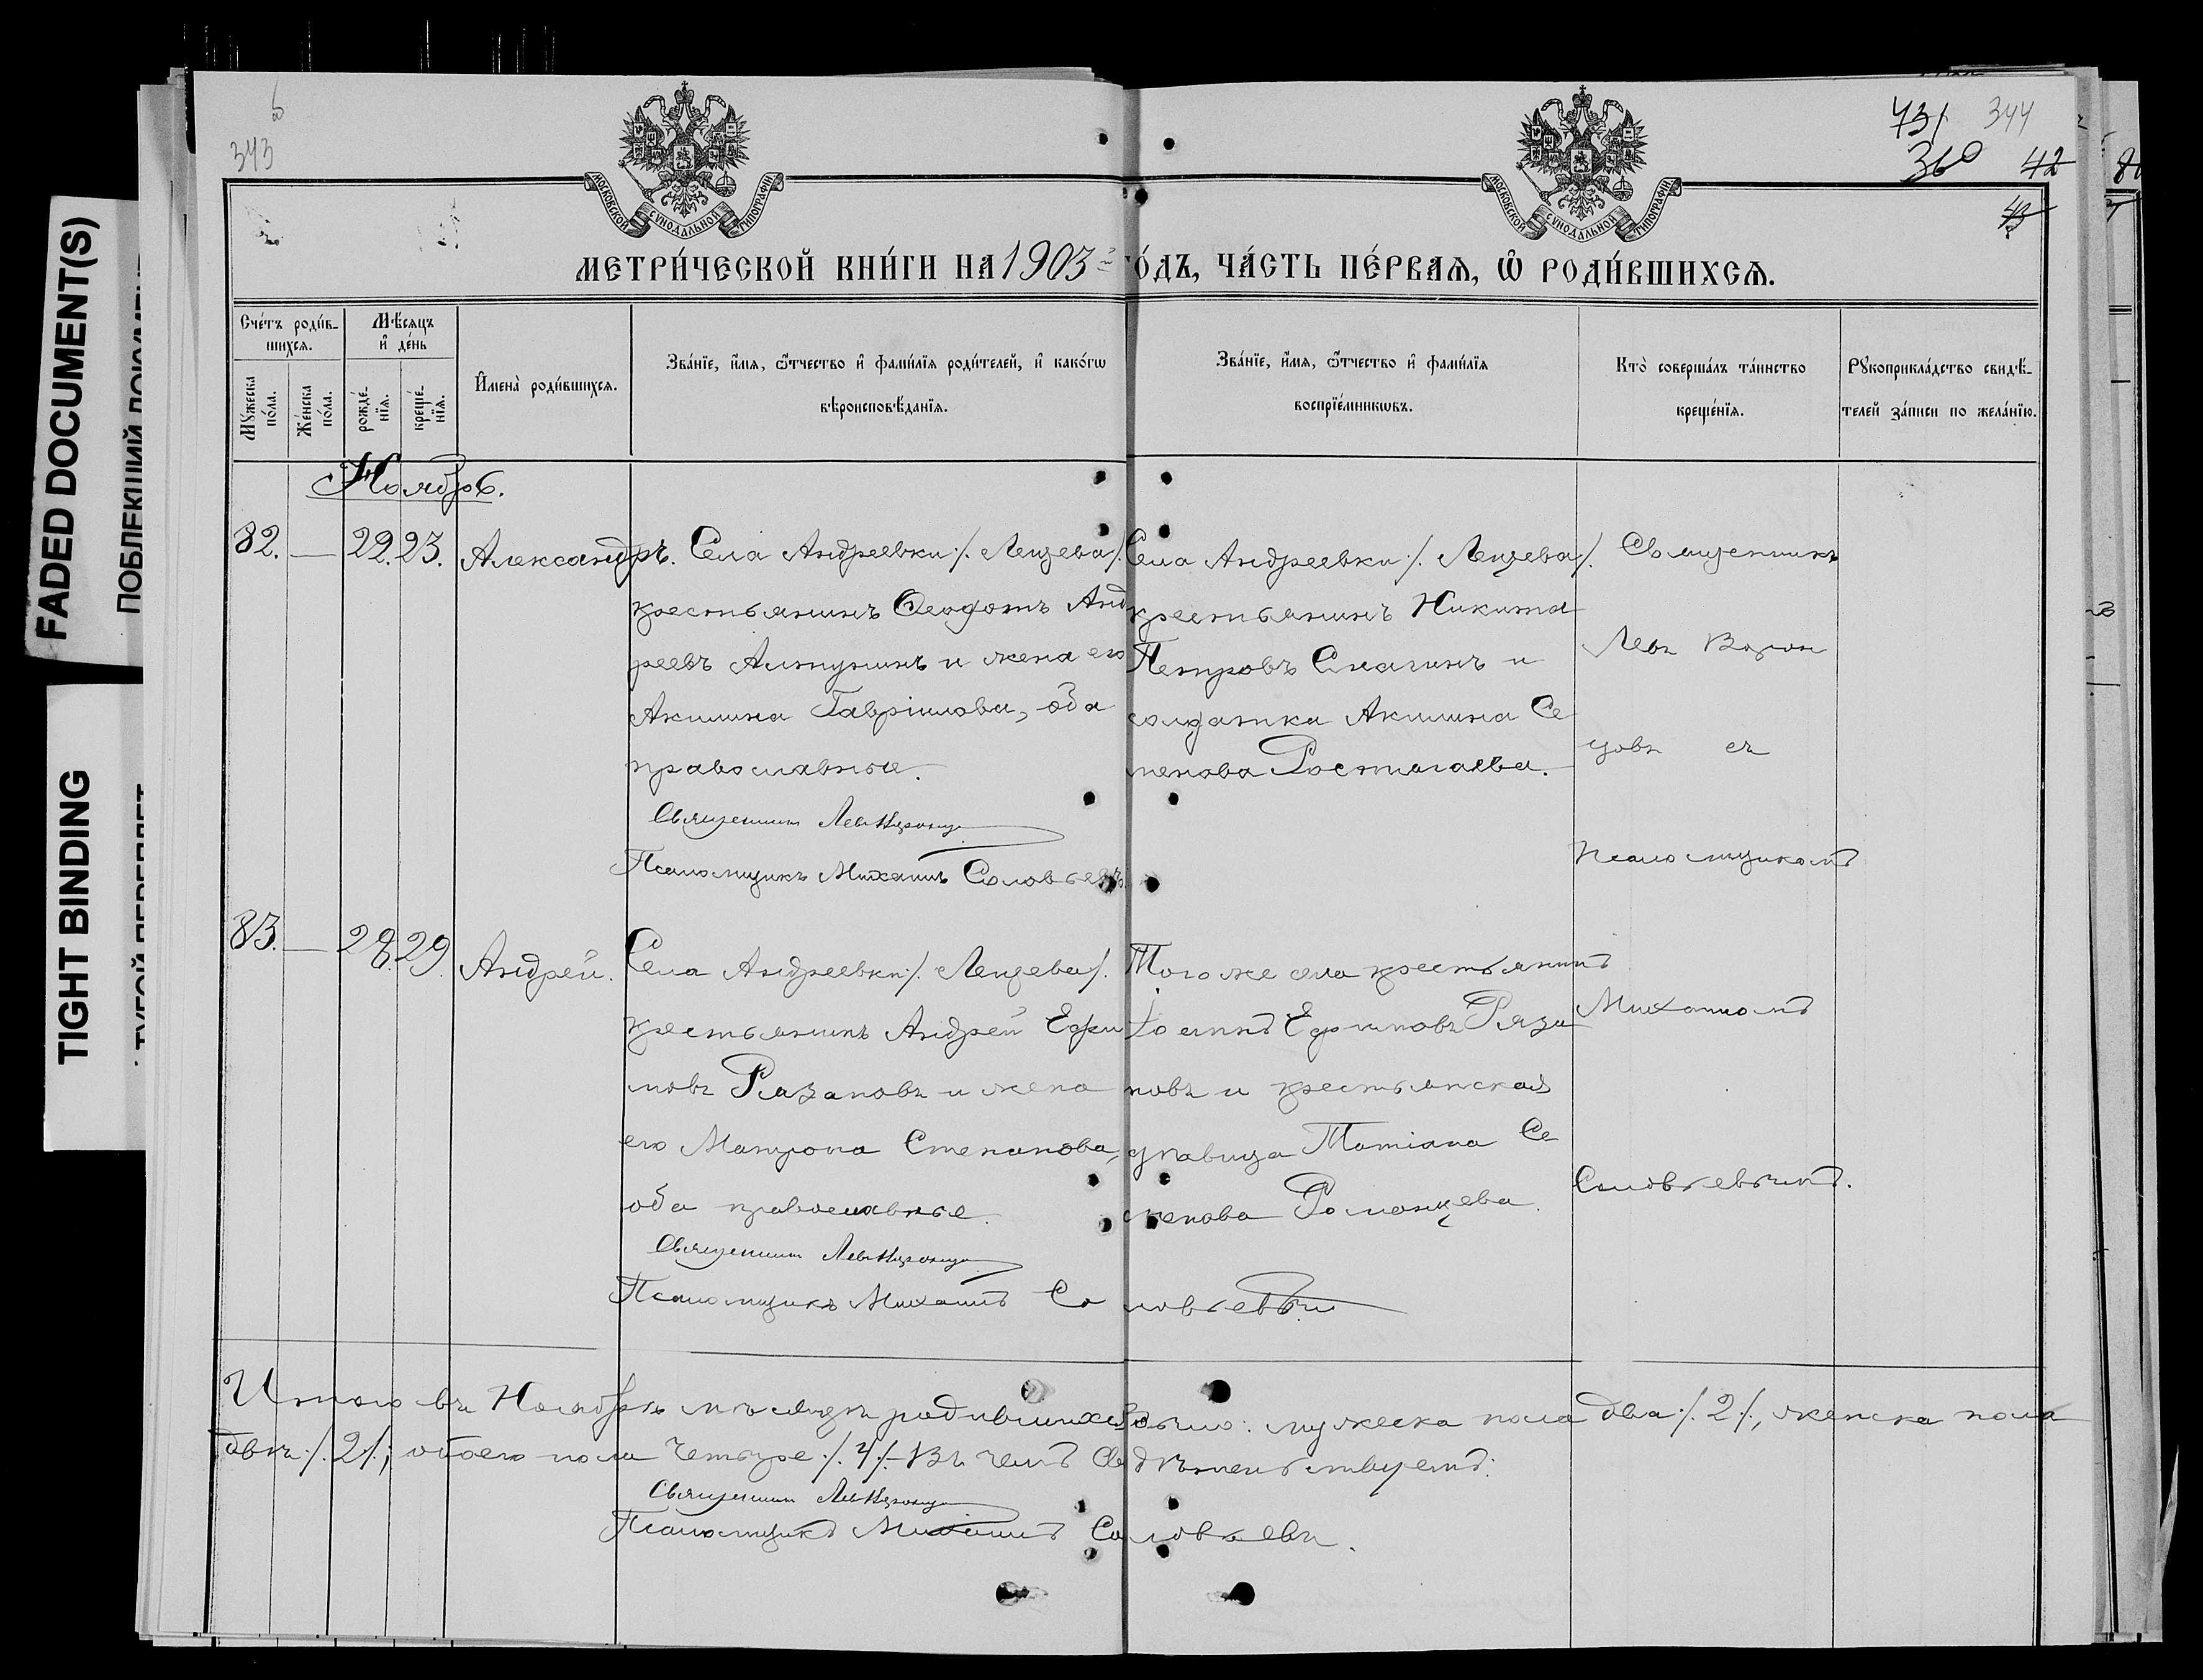 FADED DOCUMENT(S)
TIGHT BINDING
343
431 344
360 42
43
МОСКОВСКОЙ СѴНОДАЛЬНОЙ ТИПОГРАФІИ
МОСКОВСКОЙ СѴНОДАЛЬНОЙ ТИПОГРАФІИ
МЕТРИ́ЧЕСКОЙ КНИ́ГИ НА 1903й ГО́ДЪ, ЧА́СТЬ ПЕ́РВАѦ, Ѡ҆ РОДИ́ВШИХСѦ.
Сче́тъ роди́в-
шихсѧ.
Мꙋжеска по́ла.
Же́нска по́ла.
Мѣ́сѧцъ и҆ де́нь
рожде́-нїѧ.
креще́-нїѧ.
И҆мена̀ роди́вшихсѧ.
Зва́нїе, и҆́мѧ, ѻ҆́тчество и҆ фами́лїѧ роди́телей, и҆ како́гѡ
вѣроисповѣ́данїѧ.
Зва́нїе, и҆́мѧ, ѻ҆́тчество и҆ фами́лїѧ
воспрїе́мникѡвъ.
Кто̀ соверша́лъ та́инство
креще́нїѧ.
Рꙋкоприкла́дство свидѣ́-
телей за́писи по жела́нїю.
Ноябрь.
82. — 22. 23. Александръ.
Села Андреевки /. Лещева /.
крестьянинъ Ѳеодотъ Анд
реевъ Алтунинъ и жена его
Акилина Гавріилова, оба
православные.
Священникъ Левъ
Псаломщикъ Михаилъ Соловьевъ
Села Андреевки /. Лещева /.
крестьянинъ Никита
Петровъ Снагинъ и
солдатка Акилина Се
менова Ростагаева.
Священникъ
Левъ Ворон
цовъ съ
псаломщикомъ
Михаиломъ
Соловьевымъ.
83. — 28. 29. Андрей.
Села Андреевки /. Лещева /.
крестьянинъ Андрей Ефи
мовъ Рязановъ и жена
его Матрона Степанова,
оба православные.
Священникъ Левъ
Псаломщикъ Михаилъ Соловьевъ
Того же села крестьянинъ
Іоаннъ Ефимовъ Ряза
новъ и крестьянская
дѣвица Татіана Се
менова Романцева.
Итого въ Ноябрѣ мѣсяцѣ родившихся было: мужеска пола два /. 2 /., женска пола
двѣ /. 2 /.; обоего пола четыре /. 4 /. – Въ чемъ свидѣтельствуемъ:
Священникъ Левъ
Псаломщикъ Михаилъ Соловьевъ.